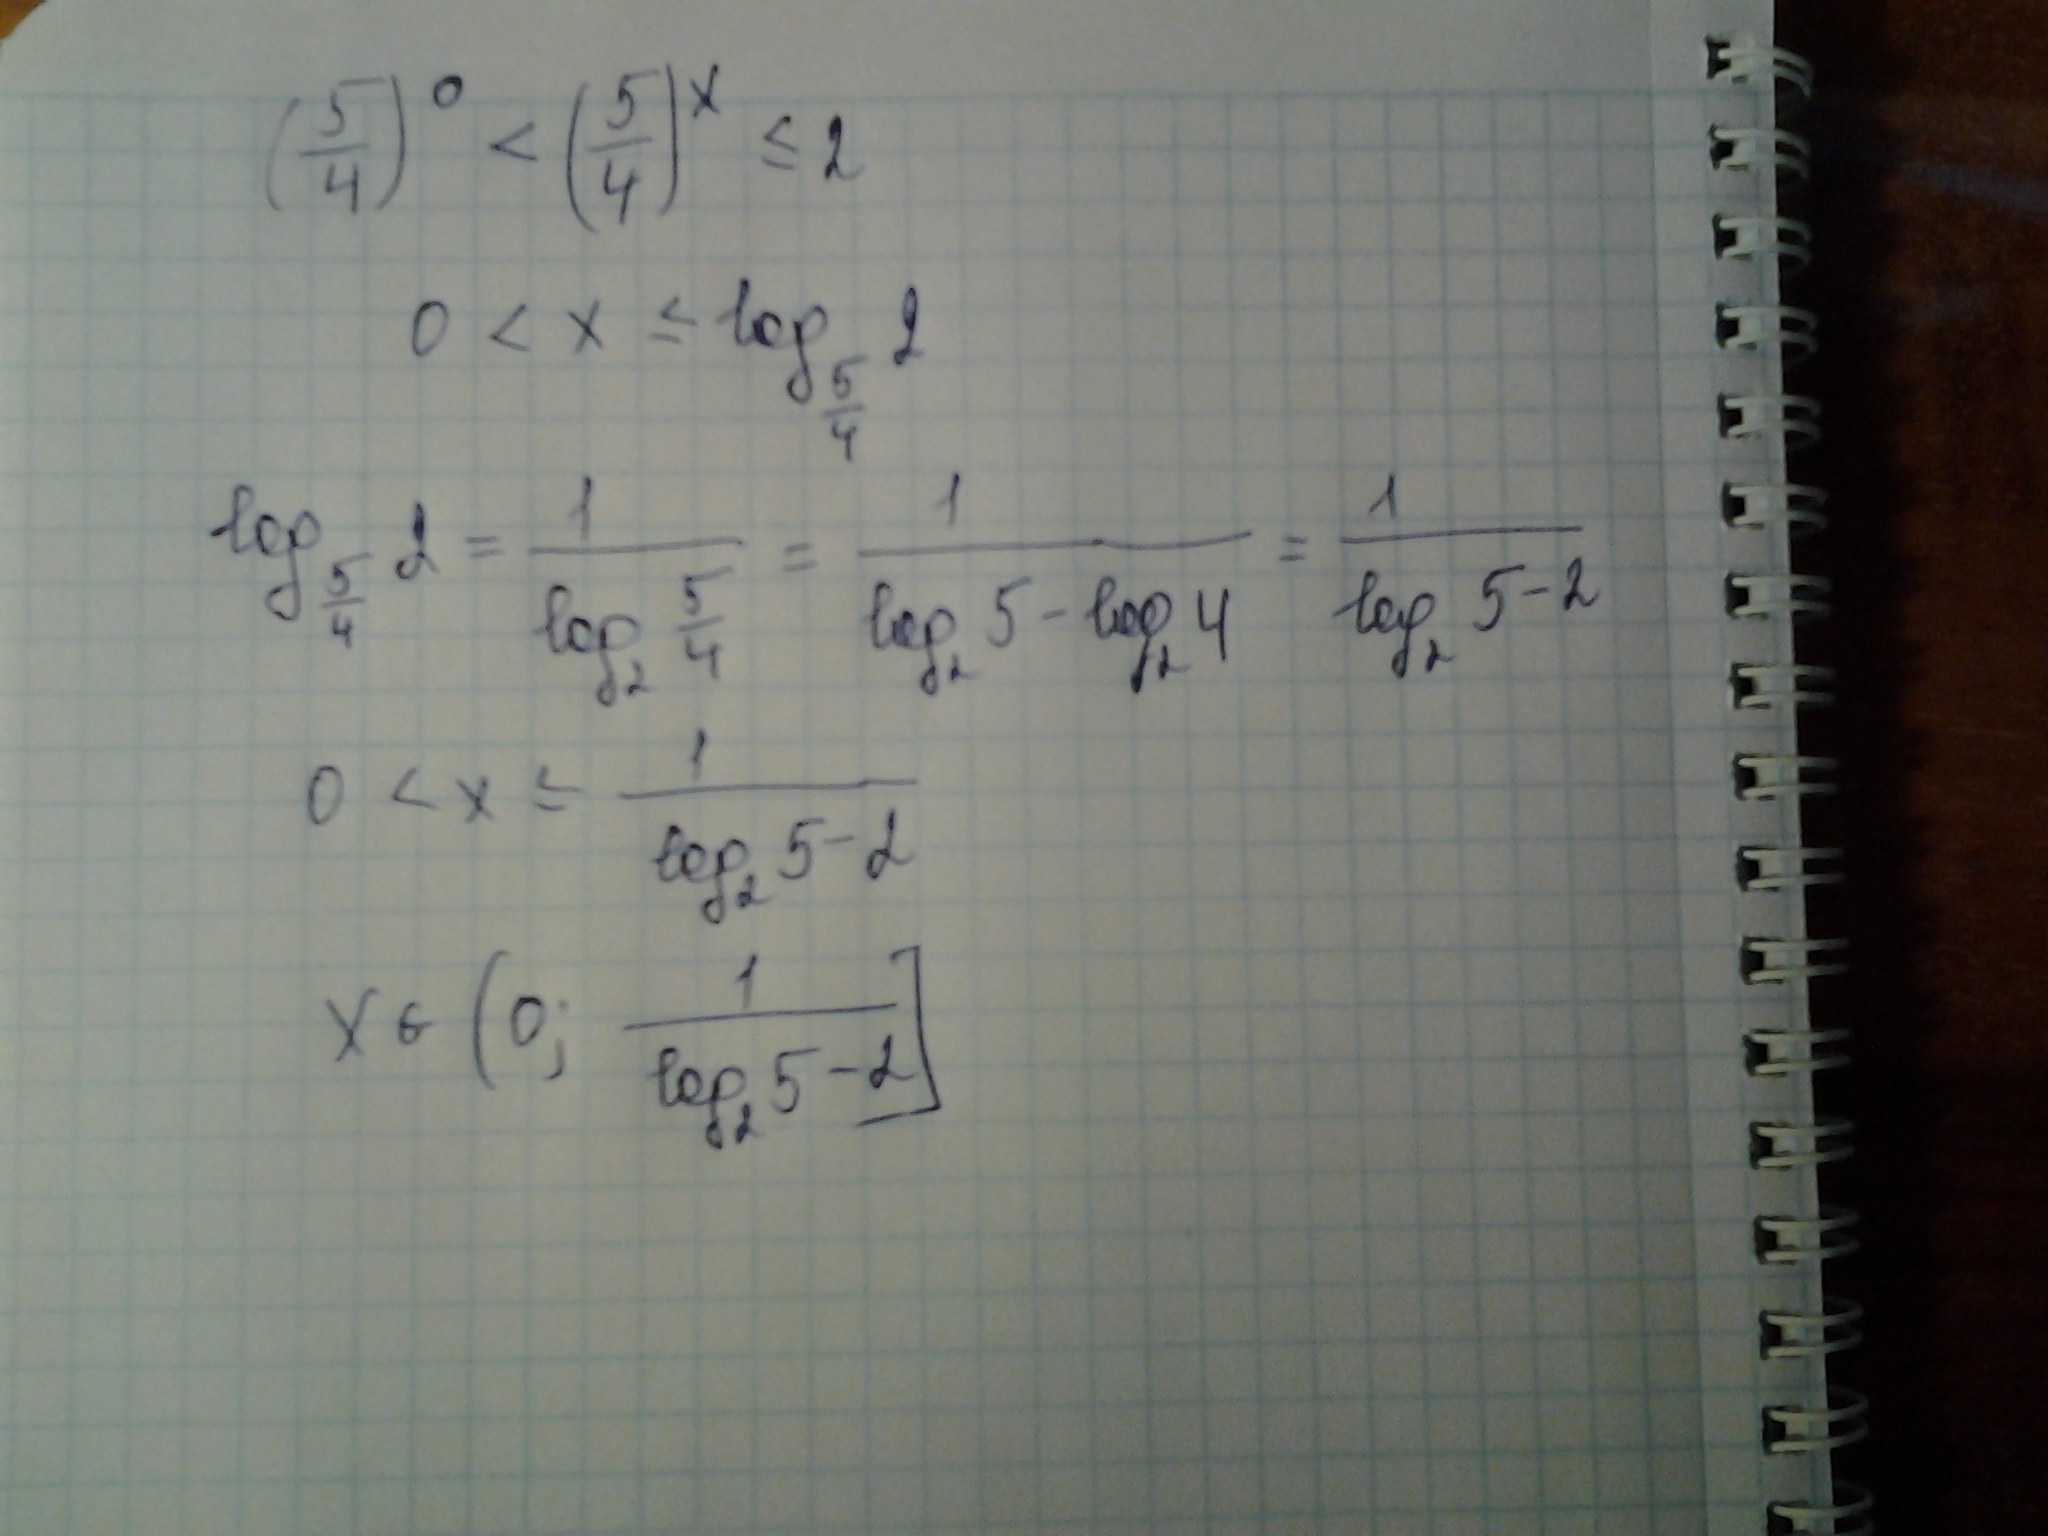 (5/4)^0 < (5/4)^x ≤ 2
0 < x ≤ log_{5/4} 2
log_{5/4} 2 = 1/(log_2 5/4) = 1/(log_2 5 - log_2 4) = 1/(log_2 5 - 2)
0 < x ≤ 1/(log_2 5 - 2)
x ∈ (0; 1/(log_2 5 - 2)]